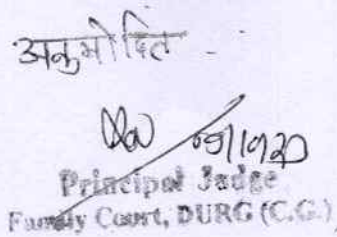 अनुमोदित
Principal Judge
Family Court, DURG (C.G.)